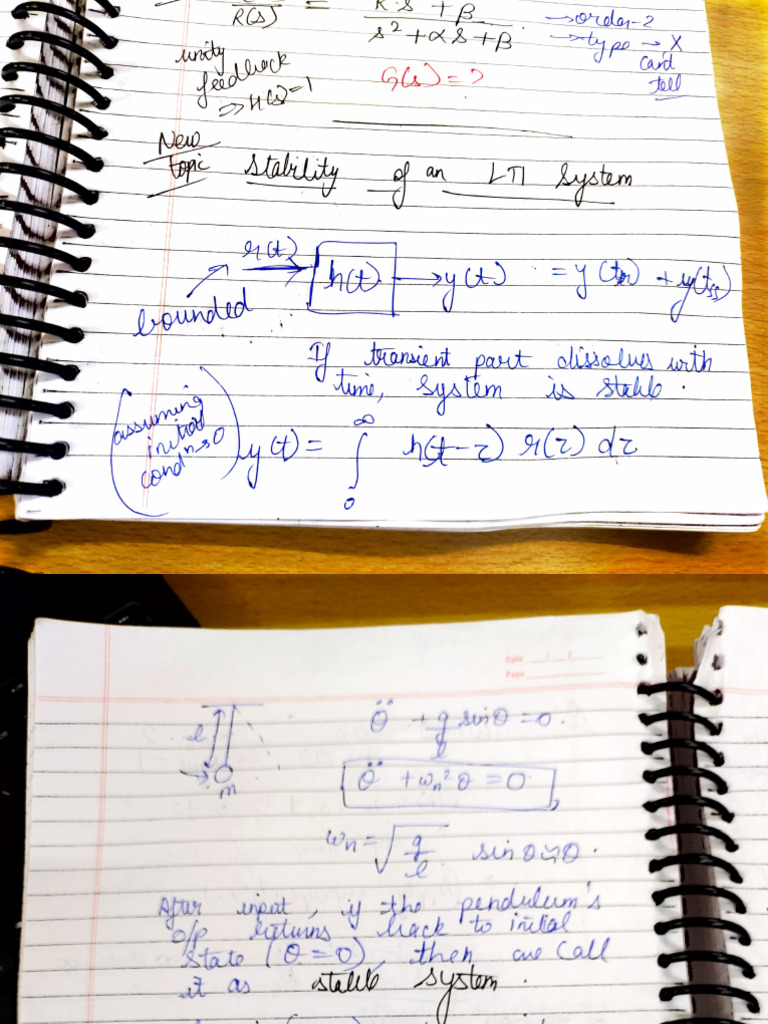 R(s) = K s + β
s² + αs + β
→ order-2
→ type → X
can't
tell
unity
feedback
⇒ H(s)=1
G(s) = ?
New
topic stability of an LTI System
r(t)
h(t) → y(t) = y(ttr) + y(tss)
bounded
If transient part dissolves with
time, system is stable.
(assuming
initial
condns 0)
y(t) = ∫₀^∞ h(t-τ) r(τ) dτ
Date
Page
l
m
θ̈ + g/l sinθ = 0.
θ̈ + ωn²θ = 0
ωn = √(g/l) sinθ ≈ θ.
After input, if the pendulum's
o/p returns back to initial
state (θ = 0), then we call
it as stable system.